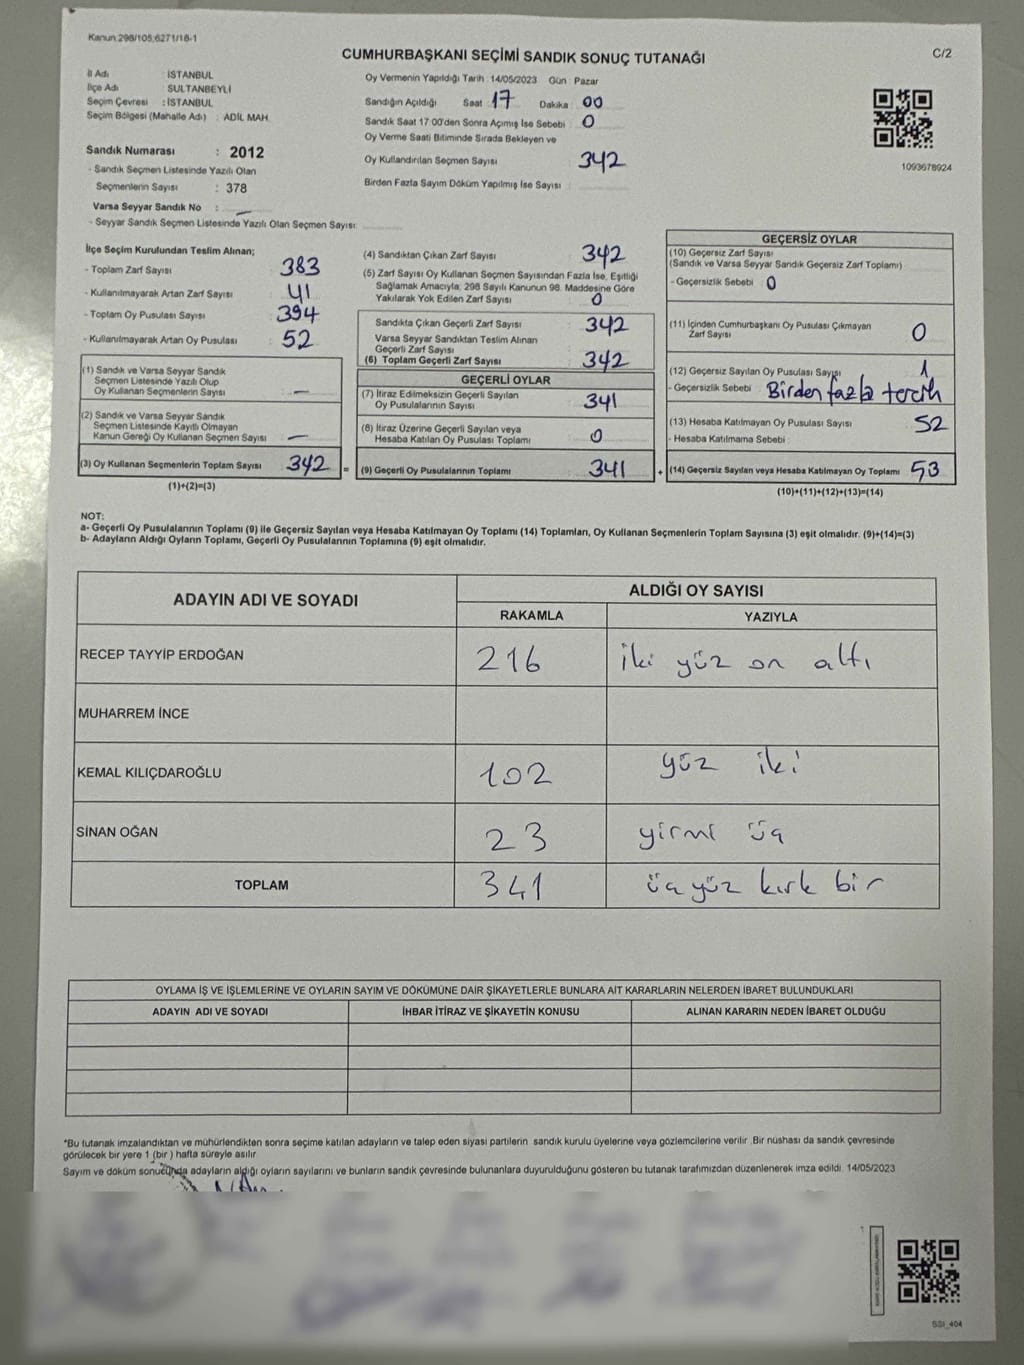 Kanun:298/105,6271/18-1
CUMHURBAŞKANI SEÇİMİ SANDIK SONUÇ TUTANAĞI
C/2
İl Adı : İSTANBUL
İlçe Adı : SULTANBEYLİ
Seçim Çevresi : İSTANBUL
Seçim Bölgesi (Mahalle Adı) : ADİL MAH.
Sandık Numarası : 2012
- Sandık Seçmen Listesinde Yazılı Olan
Seçmenlerin Sayısı : 378
Varsa Seyyar Sandık No : —
- Seyyar Sandık Seçmen Listesinde Yazılı Olan Seçmen Sayısı:
Oy Vermenin Yapıldığı Tarih : 14/05/2023 Gün : Pazar
Sandığın Açıldığı Saat 17 Dakika 00
Sandık Saat 17:00'den Sonra Açımış İse Sebebi : 0
Oy Verme Saati Bitiminde Sırada Bekleyen ve
Oy Kullandırılan Seçmen Sayısı : 342
Birden Fazla Sayım Döküm Yapılmış İse Sayısı :
1093678924
İlçe Seçim Kurulundan Teslim Alınan;
- Toplam Zarf Sayısı : 383
- Kullanılmayarak Artan Zarf Sayısı : 41
- Toplam Oy Pusulası Sayısı : 394
- Kullanılmayarak Artan Oy Pusulası : 52
(1) Sandık ve Varsa Seyyar Sandık
Seçmen Listesinde Yazılı Olup
Oy Kullanan Seçmenlerin Sayısı : —
(2) Sandık ve Varsa Seyyar Sandık
Seçmen Listesinde Kayıtlı Olmayan
Kanun Gereği Oy Kullanan Seçmen Sayısı : —
(3) Oy Kullanan Seçmenlerin Toplam Sayısı : 342 =
(1)+(2)=(3)
(4) Sandıktan Çıkan Zarf Sayısı : 342
(5) Zarf Sayısı Oy Kullanan Seçmen Sayısından Fazla İse, Eşitliği
Sağlamak Amacıyla, 298 Sayılı Kanunun 98. Maddesine Göre
Yakılarak Yok Edilen Zarf Sayısı : 0
Sandıkta Çıkan Geçerli Zarf Sayısı : 342
Varsa Seyyar Sandıktan Teslim Alınan
Geçerli Zarf Sayısı :
(6) Toplam Geçerli Zarf Sayısı : 342
GEÇERLİ OYLAR
(7) İtiraz Edilmeksizin Geçerli Sayılan
Oy Pusulalarının Sayısı : 341
(8) İtiraz Üzerine Geçerli Sayılan veya
Hesaba Katılan Oy Pusulası Toplamı : 0
(9) Geçerli Oy Pusulalarının Toplamı : 341 +
GEÇERSİZ OYLAR
(10) Geçersiz Zarf Sayısı
(Sandık ve Varsa Seyyar Sandık Geçersiz Zarf Toplamı)
- Geçersizlik Sebebi : 0
(11) İçinden Cumhurbaşkanı Oy Pusulası Çıkmayan
Zarf Sayısı 0
(12) Geçersiz Sayılan Oy Pusulası Sayısı : 1
- Geçersizlik Sebebi : Birden fazla tercih
(13) Hesaba Katılmayan Oy Pusulası Sayısı : 52
- Hesaba Katılmama Sebebi :
(14) Geçersiz Sayılan veya Hesaba Katılmayan Oy Toplamı : 53
(10)+(11)+(12)+(13)=(14)
NOT:
a- Geçerli Oy Pusulalarının Toplamı (9) ile Geçersiz Sayılan veya Hesaba Katılmayan Oy Toplamı (14) Toplamları, Oy Kullanan Seçmenlerin Toplam Sayısına (3) eşit olmalıdır. (9)+(14)=(3)
b- Adayların Aldığı Oyların Toplamı, Geçerli Oy Pusulalarının Toplamına (9) eşit olmalıdır.
ADAYIN ADI VE SOYADI
ALDIĞI OY SAYISI
RAKAMLA YAZIYLA
RECEP TAYYİP ERDOĞAN 216 iki yüz on altı
MUHARREM İNCE
KEMAL KILIÇDAROĞLU 102 yüz iki
SİNAN OĞAN 23 yirmi üç
TOPLAM 341 üç yüz kırk bir
OYLAMA İŞ VE İŞLEMLERİNE VE OYLARIN SAYIM VE DÖKÜMÜNE DAİR ŞİKAYETLERLE BUNLARA AİT KARARLARIN NELERDEN İBARET BULUNDUKLARI
ADAYIN ADI VE SOYADI İHBAR İTİRAZ VE ŞİKAYETİN KONUSU ALINAN KARARIN NEDEN İBARET OLDUĞU
*Bu tutanak imzalandıktan ve mühürlendikten sonra seçime katılan adayların ve talep eden siyasi partilerin sandık kurulu üyelerine veya gözlemcilerine verilir .Bir nüshası da sandık çevresinde
görülecek bir yere 1 (bir ) hafta süreyle asılır
Sayım ve döküm sonucunda adayların aldığı oyların sayılarını ve bunların sandık çevresinde bulunanlara duyurulduğunu gösteren bu tutanak tarafımızdan düzenlenerek imza edildi. 14/05/2023
SSI_404